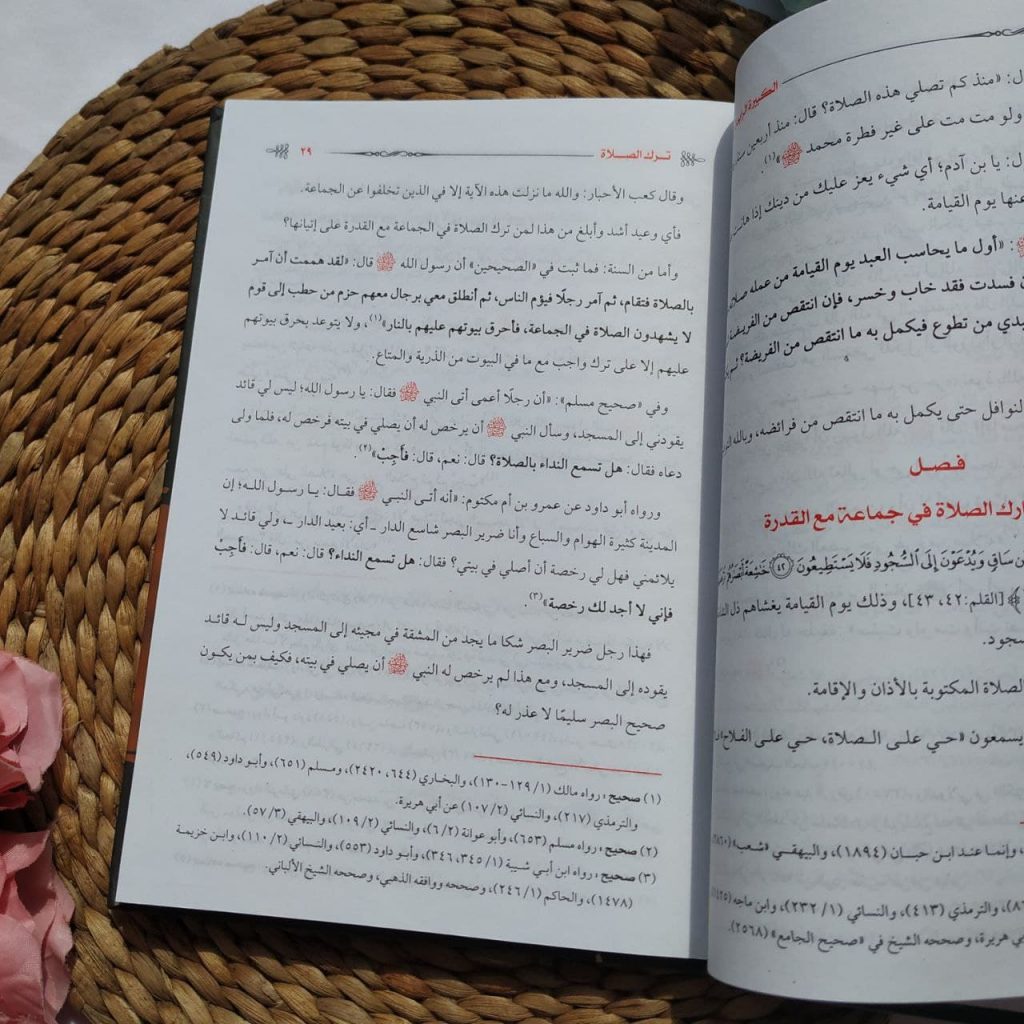 الكبيرة الرابعة
ال: «منذ كم تصلي هذه الصلاة؟ قال: منذ أربعين سنة
ولو مت مت على غير فطرة محمد ﷺ»(١).
ال: يا بن آدم؛ أي شيء يعز عليك من دينك إذا هانت
عنها يوم القيامة.
ﷺ: «أول ما يحاسب العبد يوم القيامة من عمله صلا
ن فسدت فقد خاب وخسر، فإن انتقص من الفريضة
بدي من تطوع فيكمل به ما انتقص من الفريضة؟ ثم
لنوافل حتى يكمل به ما انتقص من فرائضه، وبالله
فصل
ارك الصلاة في جماعة مع القدرة
ن سَاقٍ وَيُدْعَوْنَ إِلَى ٱلسُّجُودِ فَلَا يَسْتَطِيعُونَ ﴿٤٢﴾ خَٰشِعَةً أَبْصَٰرُهُمْ
﴾ [القلم:٤٢، ٤٣]، وذلك يوم القيامة يغشاهم ذل
سجود.
الصلاة المكتوبة بالأذان والإقامة.
يسمعون «حي على الصلاة، حي على الفلاح»
، وإنما عند ابن حبان (١٨٩٤)، والبيهقي «شعب»
)، والترمذي (٤١٣)، والنسائي (١/ ٢٣٢)، وابن ماجه
ي هريرة، وصححه الشيخ في «صحيح الجامع» (٢٥٦٨).
ترك الصلاة ٢٩
وقال كعب الأحبار: والله ما نزلت هذه الآية إلا في الذين تخلفوا عن الجماعة.
فأي وعيد أشد وأبلغ من هذا لمن ترك الصلاة في الجماعة مع القدرة على إتيانها؟
وأما من السنة: فما ثبت في «الصحيحين» أن رسول الله ﷺ قال: «لقد هممت أن آمر
بالصلاة فتقام، ثم آمر رجلًا فيؤم الناس، ثم أنطلق معي برجال معهم حزم من حطب إلى قوم
لا يشهدون الصلاة في الجماعة، فأحرق بيوتهم عليهم بالنار»(١)، ولا يتوعد بحرق بيوتهم
عليهم إلا على ترك واجب مع ما في البيوت من الذرية والمتاع.
وفي «صحيح مسلم»: «أن رجلًا أعمى أتى النبي ﷺ فقال: يا رسول الله؛ ليس لي قائد
يقودني إلى المسجد، وسأل النبي ﷺ أن يرخص له أن يصلي في بيته فرخص له، فلما ولى
دعاه فقال: هل تسمع النداء بالصلاة؟ قال: نعم، قال: فَأَجِبْ»(٢).
ورواه أبو داود عن عمرو بن أم مكتوم: «أنه أتى النبي ﷺ فقال: يا رسول الله؛ إن
المدينة كثيرة الهوام والسباع وأنا ضرير البصر شاسع الدار ـ أي: بعيد الدار ـ، ولي قائد لا
يلائمني فهل لي رخصة أن أصلي في بيتي؟ فقال: هل تسمع النداء؟ قال: نعم، قال: فَأَجِبْ
فإني لا أجد لك رخصة»(٣).
فهذا رجل ضرير البصر شكا ما يجد من المشقة في مجيئه إلى المسجد وليس له قائد
يقوده إلى المسجد، ومع هذا لم يرخص له النبي ﷺ أن يصلي في بيته، فكيف بمن يكون
صحيح البصر سليمًا لا عذر له؟
(١) صحيح: رواه مالك (١/ ١٢٩-١٣٠)، والبخاري (٦٤٤، ٢٤٢٠)، ومسلم (٦٥١)، وأبو داود (٥٤٩)،
والترمذي (٢١٧)، والنسائي (٢/ ١٠٧) عن أبي هريرة.
(٢) صحيح: رواه مسلم (٦٥٣)، وأبو عوانة (٢/ ٦)، والنسائي (٢/ ١٠٩)، والبيهقي (٣/ ٥٧).
(٣) صحيح: رواه ابن أبي شيبة (١/ ٣٤٥، ٣٤٦)، وأبو داود (٥٥٣)، والنسائي (٢/ ١١٠)، وابن خزيمة
(١٤٧٨)، والحاكم (١/ ٢٤٦)، وصححه ووافقه الذهبي، وصححه الشيخ الألباني.